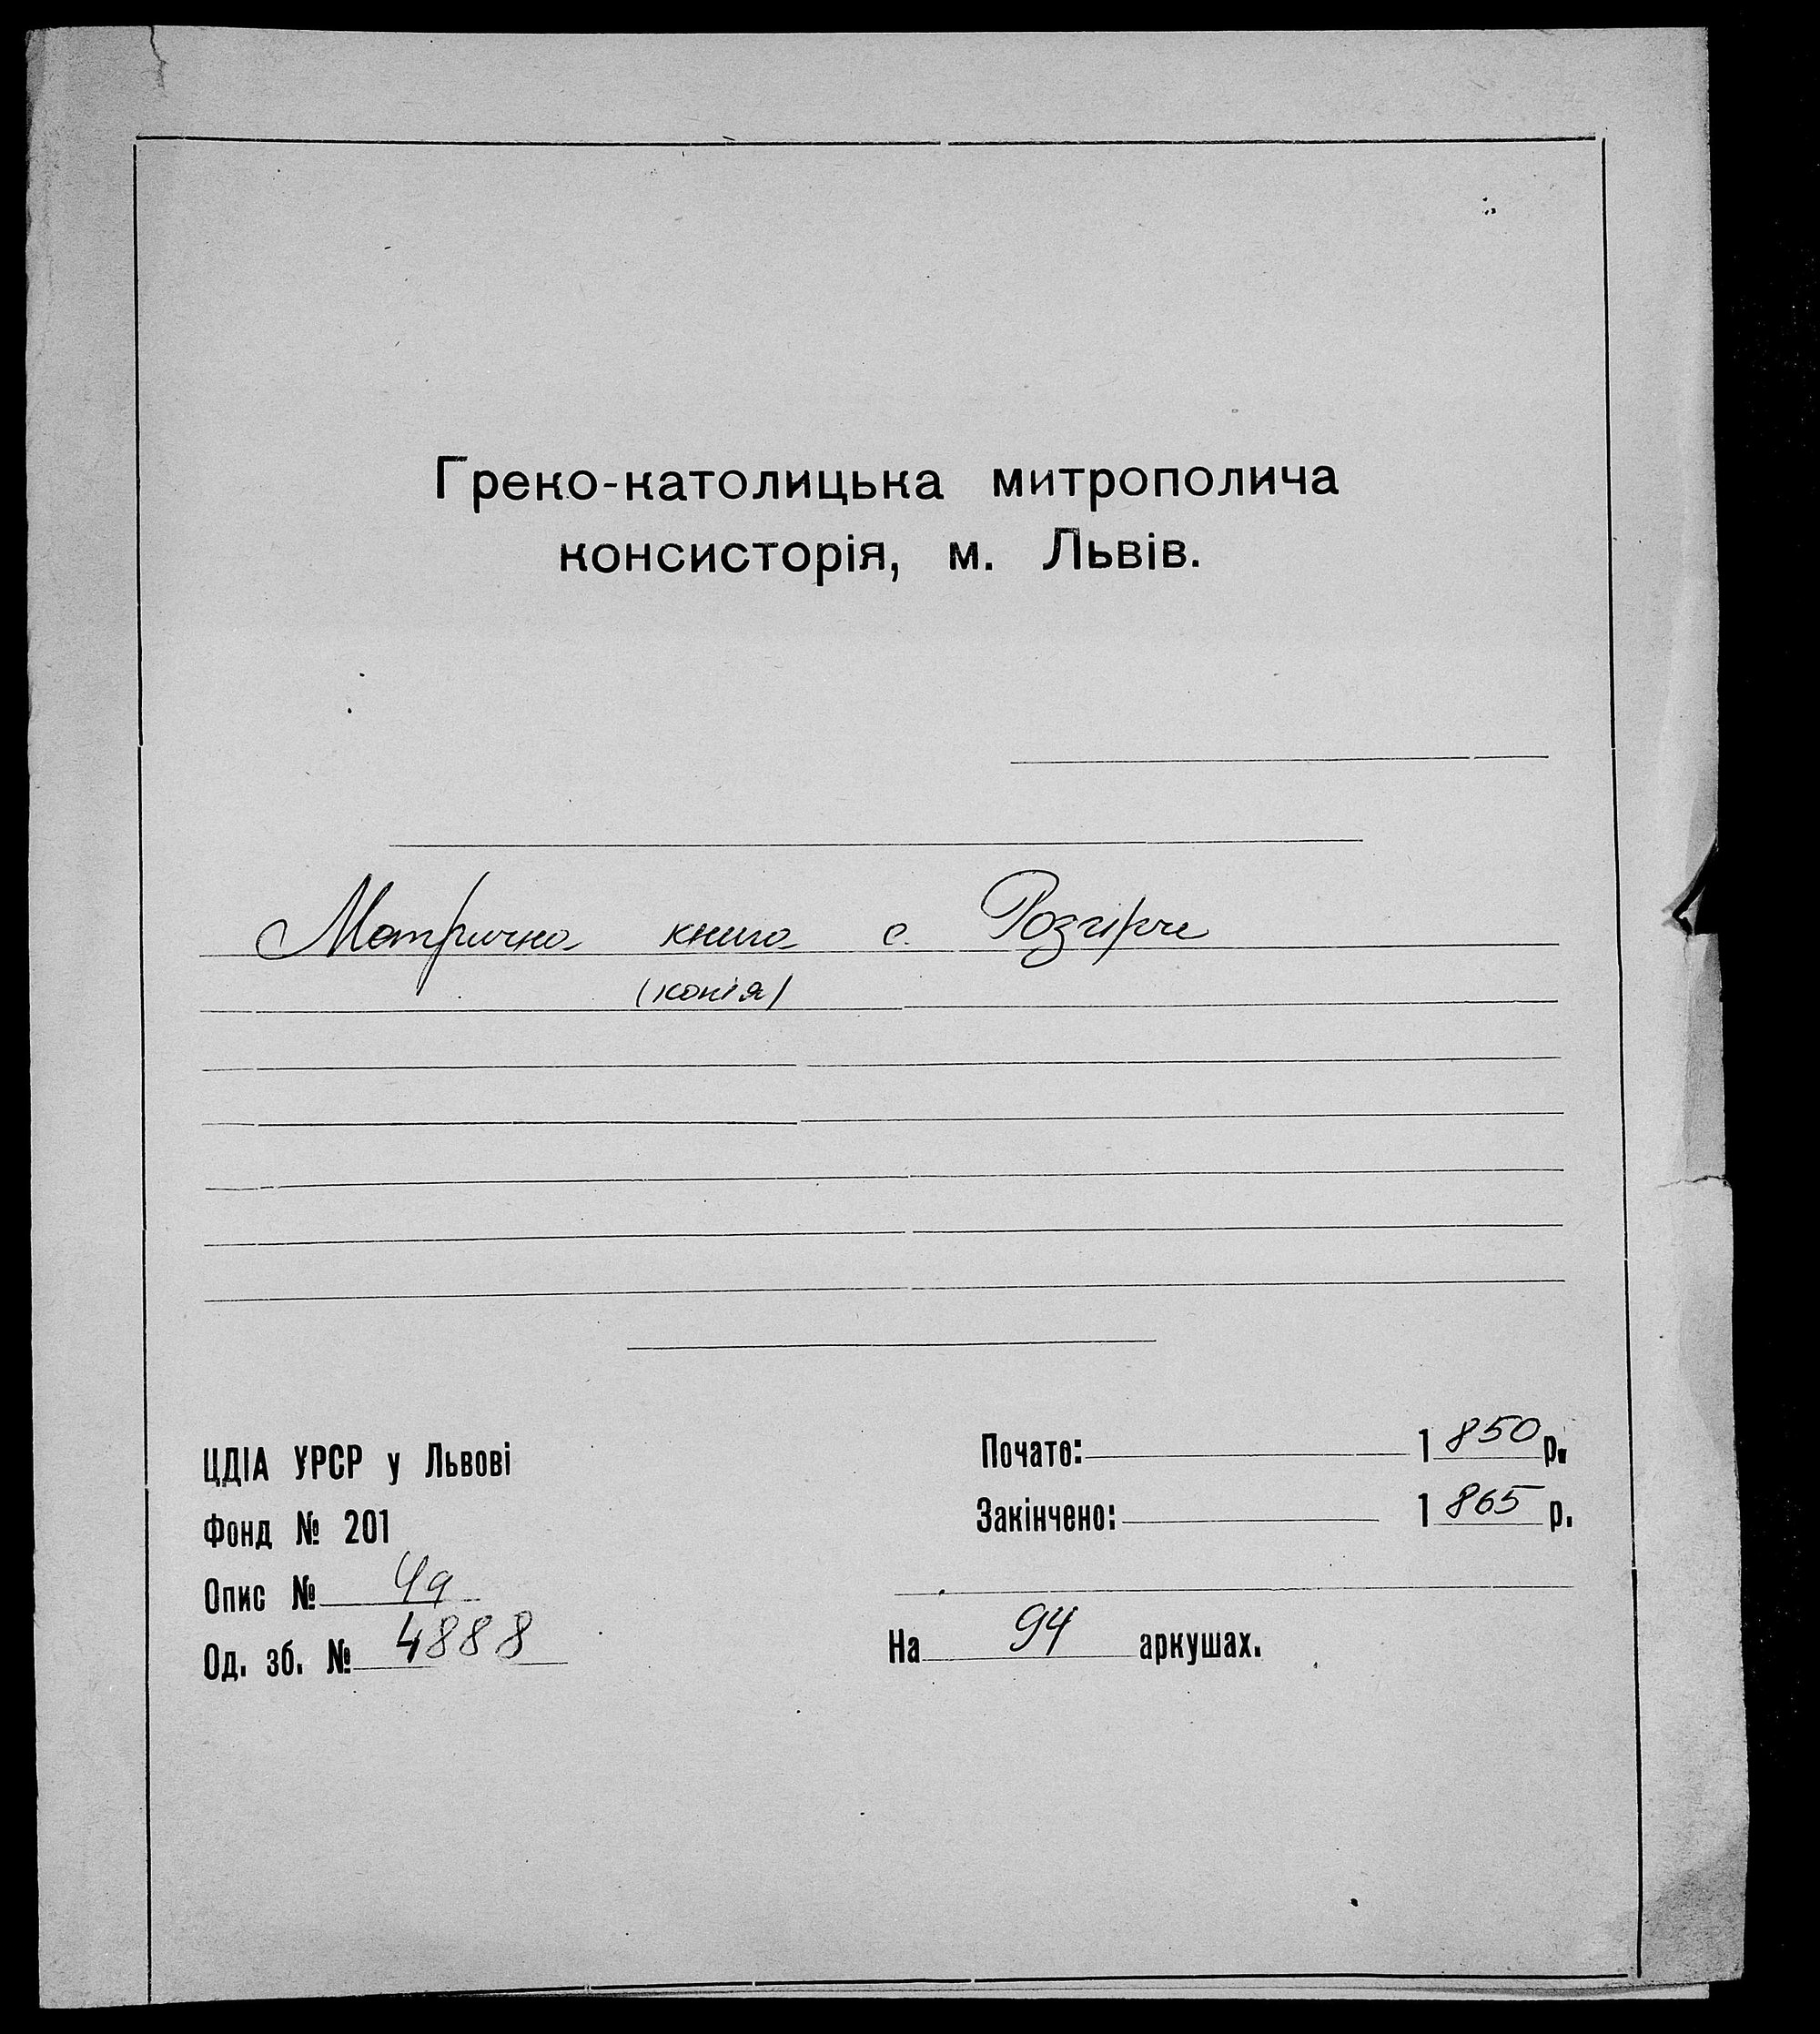 Греко-католицька митрополича
консисторія, м. Львів.
Метрична книга с. Розгірче
(копія)
ЦДІА УРСР у Львові
Фонд № 201
Опис № 4а
Од. зб. № 4888
Почато: 1850 р.
Закінчено: 1865 р.
На 94 аркушах.